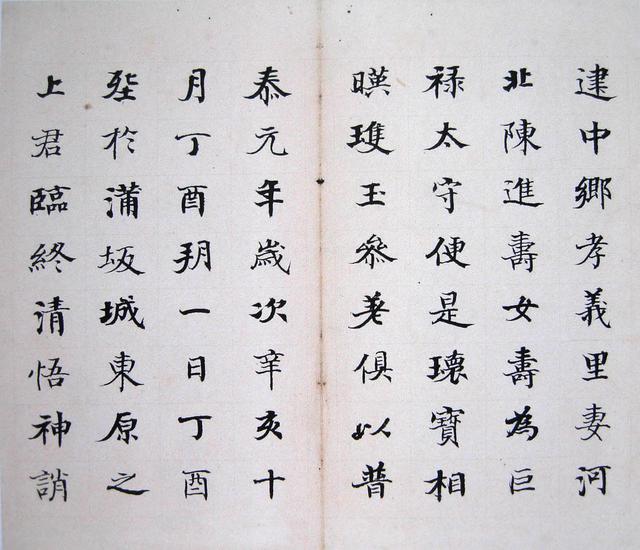 建中鄉孝義里妻河
北陳進壽女壽為巨
禄太守便是瓌寶相
暎瓊玉叅差俱以普
泰元年歲次辛亥十
月丁酉朔一日丁酉
塟於蒲坂城東原之
上君臨終清悟神誚